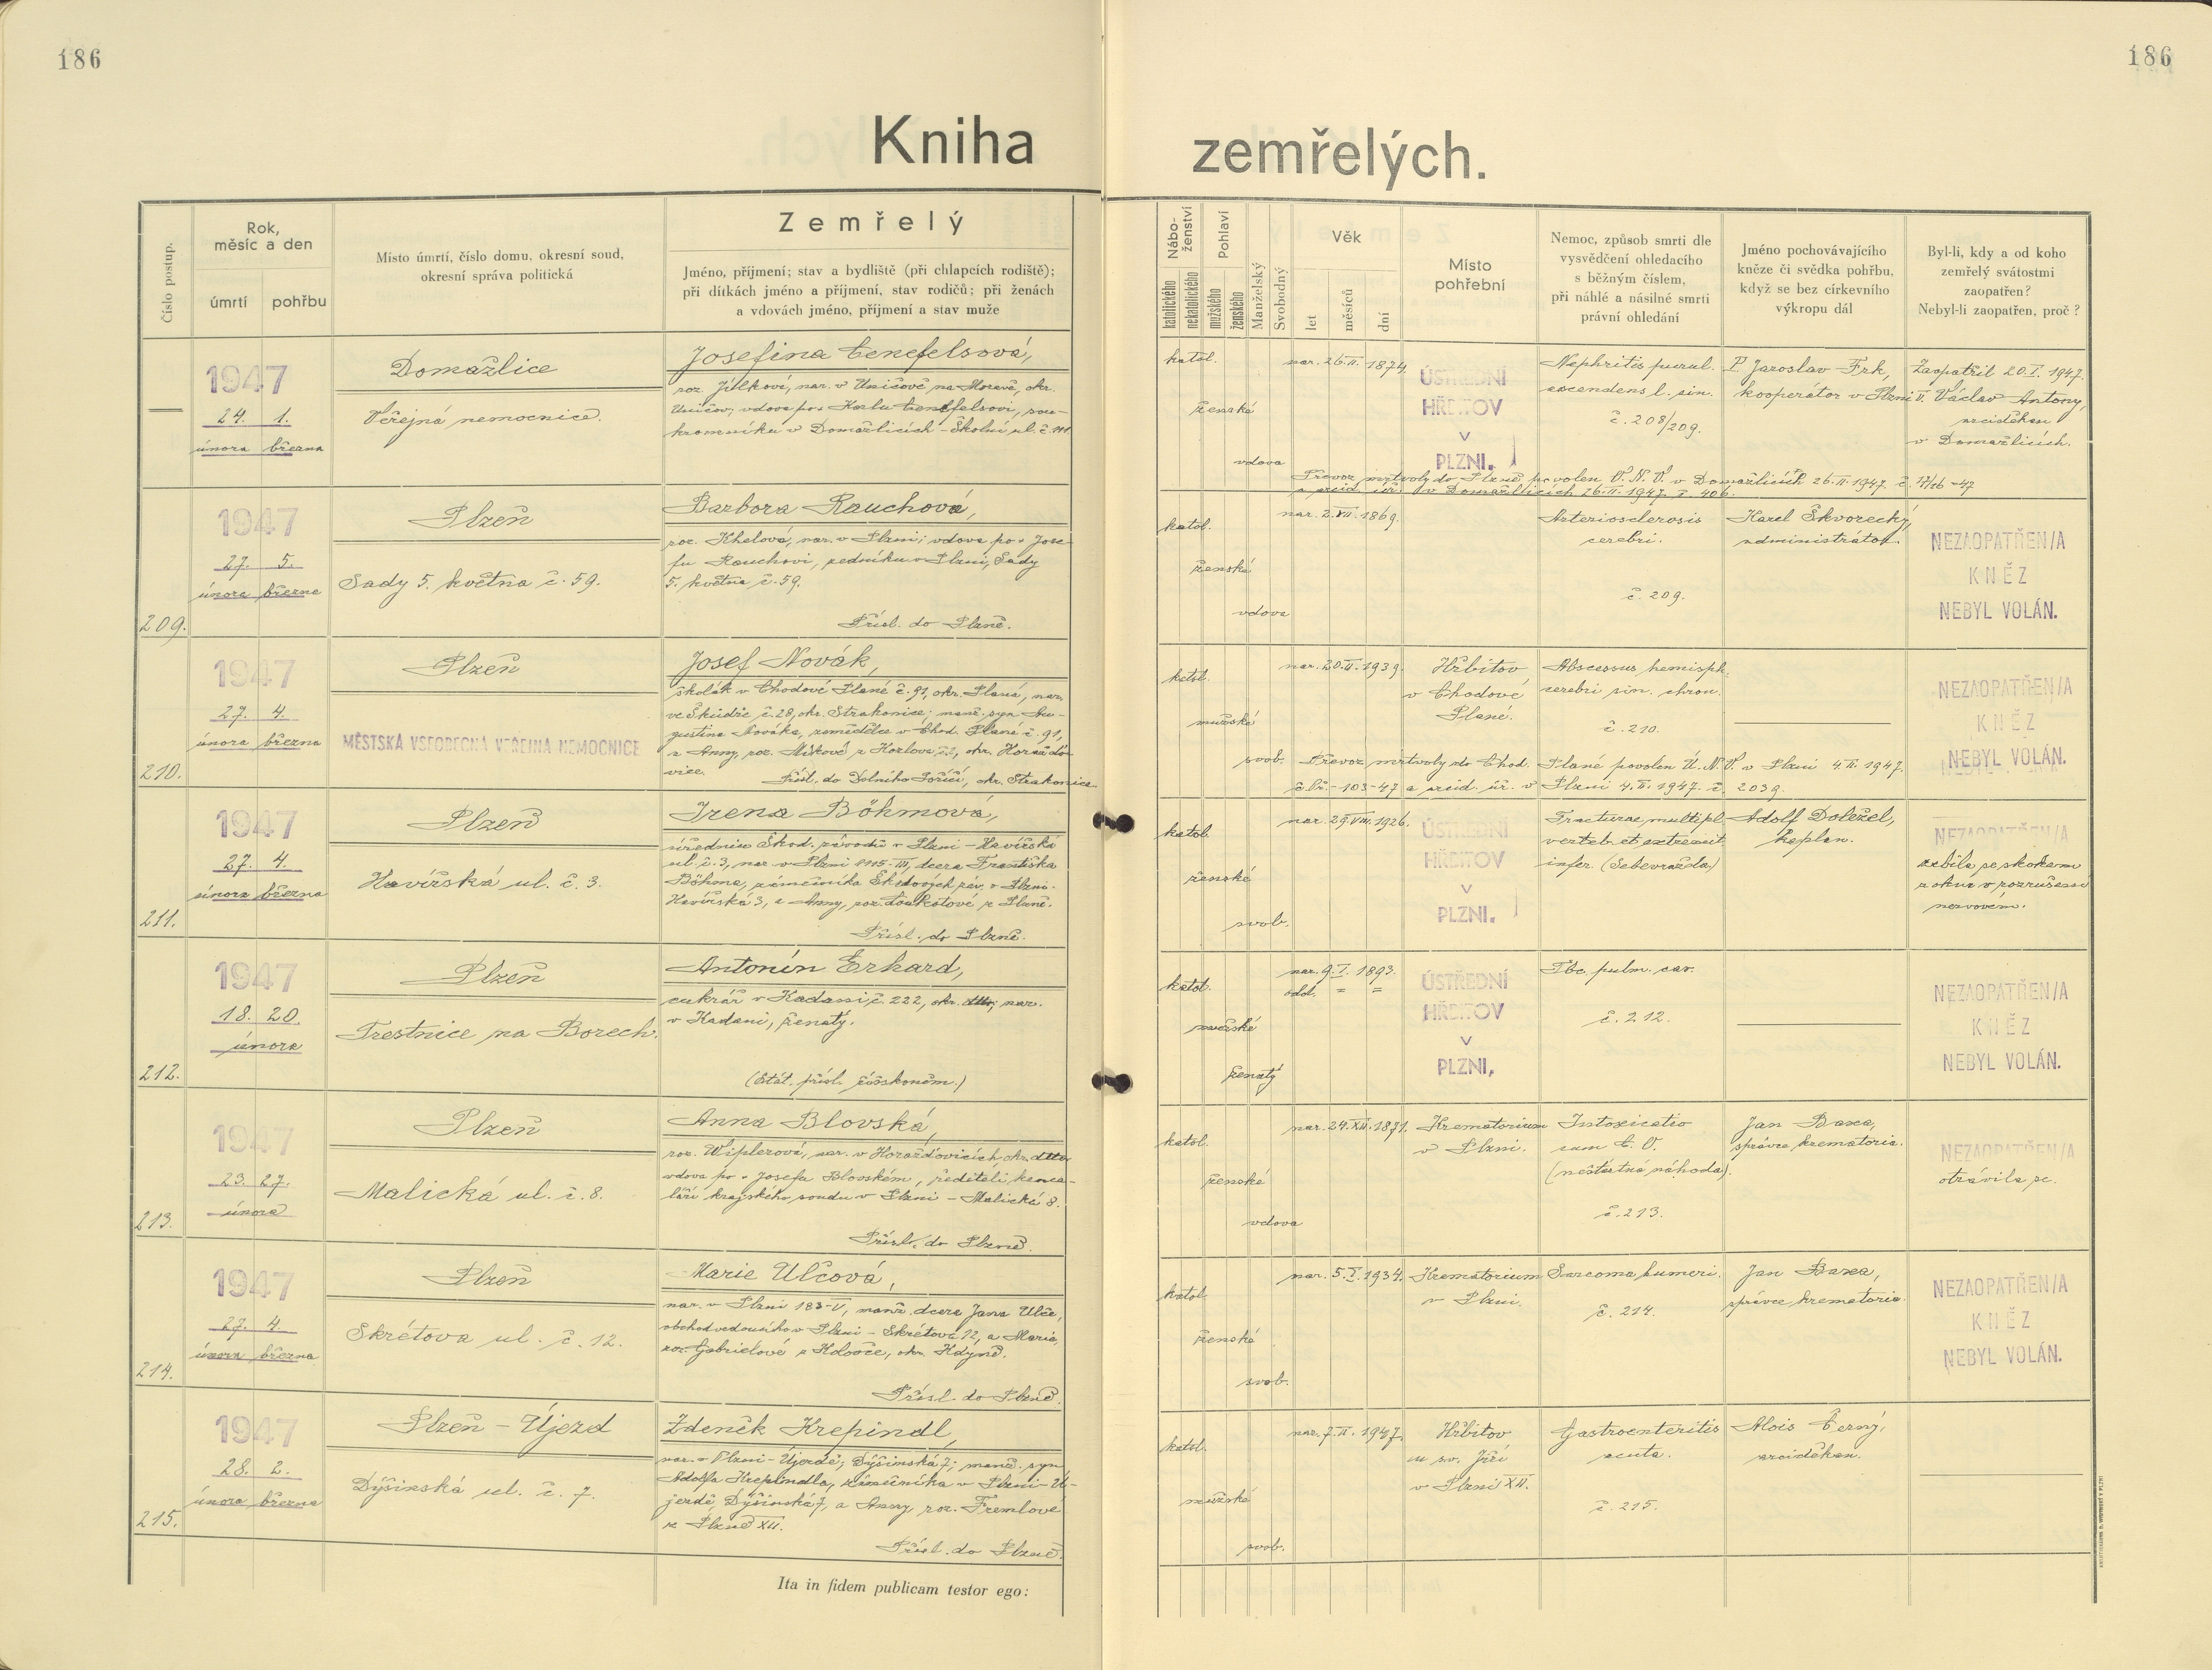 186
186
Kniha zemřelých.
Číslo postup.
Rok, měsíc a den
úmrtí
pohřbu
Místo úmrtí, číslo domu, okresní soud,
okresní správa politická
Zemřelý
Jméno, příjmení; stav a bydliště (při chlapcích rodiště);
při dítkách jméno a příjmení, stav rodičů; při ženách
a vdovách jméno, příjmení a stav muže
Nábo-
ženství
katolického
nekatolického
Pohlaví
mužského
ženského
Manželský
Svobodný
Věk
let
měsíců
dní
Místo
pohřební
Nemoc, způsob smrti dle
vysvědčení ohledacího
s běžným číslem,
při náhlé a násilné smrti
právní ohledání
Jméno pochovávajícího
kněze či svědka pohřbu,
když se bez církevního
výkropu dál
Byl-li, kdy a od koho
zemřelý svátostmi
zaopatřen?
Nebyl-li zaopatřen, proč?
1947
24. 1.
února března
Domažlice
Veřejná nemocnice.
Josefina
roz. Jílková, nar. v Uničově na Moravě, okr.
Uničov; vdova po + Karlu sou-
kromníku v Domažlicích - Školní ul. č. 111
katol.
ženské
vdova
nar. 26.II. 1874.
ÚSTŘEDNÍ
HŘBITOV
V
PLZNI.
Nephritis purul.
ascendens l. sin.
č. 208/209.
P. Jaroslav Frk,
kooperátor v Plzni
Zaopatřil 20.I. 1947.
Václav Antony,
arciděkan
v Domažlicích.
Převoz mrtvoly do Plzně povolen O.N.V. v Domažlicích 26.II.1947. č.
v Domažlicích 26.II.1947. č. 406.
209.
1947
27. 5.
února března
Plzeň
Sady 5. května č. 59.
Barbora Rauchová,
roz. Khelová, nar. v Plzni; vdova po + Jose-
fu Rauchovi, zedníku v Plzni, Sady
5. května č. 59.
Přísl. do Plzně.
katol.
ženské
vdova
nar. 2.XII. 1869.
Arteriosclerosis
cerebri.
č. 209.
Karel Škvorecký,
administrátor.
NEZAOPATŘEN/A
KNĚZ
NEBYL VOLÁN.
210.
1947
27. 4.
února března
Plzeň
MĚSTSKÁ VŠEOBECNÁ VEŘEJNÁ NEMOCNICE
Josef Novák,
školák v Chodové Plané č. 91, okr. Planá, nar.
ve č. 28, okr. Strakonice; manž. syn Au-
gustina Nováka, zemědělce v Chod. Plané č. 91,
a Anny, roz. Míškové z Kozlova č. 2, okr. Horažďo-
vice.
Přísl. do Dolního Poříčí, okr. Strakonice
katol.
mužské
svob.
nar. 20.II. 1939.
Hřbitov
v Chodové
Plané.
Abscessus hemisph.
cerebri sin. chron.
č. 210.
NEZAOPATŘEN/A
KNĚZ
NEBYL VOLÁN.
Převoz mrtvoly do Chod. Plané povolen Ú.N.V. v Plzni 4.III. 1947.
č. Př. - 103-47 a úř. v Plzni 4.III. 1947. č. 2039.
211.
1947
27. 4.
února března
Plzeň
Havířská ul. č. 3.
Irena Böhmová,
úřednice Škod. závodů v Plzni - Havířská
ul. č. 3, nar. v Plzni dcera Františka
Böhma, zámečníka Škodových záv. v Plzni-
Havířská 3, a Anny, roz. z Plzně.
Přísl. do Plzně.
katol.
ženské
svob.
nar. 29.VIII. 1926.
ÚSTŘEDNÍ
HŘBITOV
V
PLZNI.
Fracturae multipl.
verteb. et extremit.
infer. (Sebevražda)
Adolf Doležel,
kaplan.
NEZAOPATŘEN/A
zabila se skokem
z okna v rozrušení
nervovém.
212.
1947
18. 20.
února
Plzeň
Trestnice na Borech.
Antonín Erhard,
cukrář v Kadani č. 222, okr. dtto, nar.
v Kadani, ženatý.
(Stát. přísl. říšskoněm.)
katol.
mužské
ženatý
nar. 9.I. 1893.
odd. = =
ÚSTŘEDNÍ
HŘBITOV
V
PLZNI.
Tbc. pulm. cav.
č. 212.
NEZAOPATŘEN/A
KNĚZ
NEBYL VOLÁN.
213.
1947
23. 27.
února
Plzeň
Malická ul. č. 8.
Anna Blovská,
roz. Wiplerová, nar. v Horažďovicích, okr. dtto
vdova po + Josefu Blovském, řediteli kance-
láří krajského soudu v Plzni - Malická 8.
Přísl. do Plzně.
katol.
ženské
vdova
nar. 24.XII. 1871.
Krematorium
v Plzni.
Intoxicatio
cum C.O.
(nešťastná náhoda).
č. 213.
Jan Baxa,
správce krematoria.
NEZAOPATŘEN/A
otrávila se.
214.
1947
27. 4
února března
Plzeň
Skrétova ul. č. 12.
Marie Ulčová,
nar. v Plzni 183-V, manž. dcera Jana Ulče,
obchodvedoucího v Plzni - Skrétova 12, a Marie,
roz. Gabrielové z Kdyně.
Přísl. do Plzně.
katol.
ženské
svob.
nar. 5.I. 1934.
Krematorium
v Plzni.
Sarcoma humeri.
č. 214.
Jan Baxa,
správce krematoria.
NEZAOPATŘEN/A
KNĚZ
NEBYL VOLÁN.
215.
1947
28. 2.
února března
Plzeň - Újezd
Dýšinská ul. č. 7.
Zdeněk Krepindl,
nar. v Plzni - Újezdě, Dýšinská 7; manž. syn
Adolfa Krepindla, zámečníka v Plzni-Ú-
jezdě, Dýšinská 7, a Anny, roz. Fremlové
z Plzně XII.
Přísl. do Plzně.
katol.
mužské
svob.
nar. 7.II. 1947.
Hřbitov
u sv. Jiří
v Plzni XII.
Gastroenteritis
acuta.
č. 215.
Alois Černý,
arciděkan.
Ita in fidem publicam testor ego: